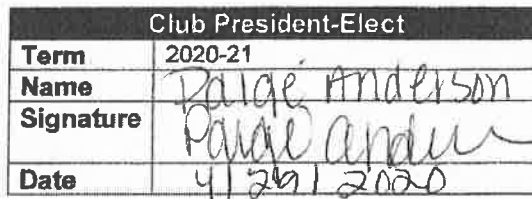 Club President-Elect
Term 2020-21
Name Paige Anderson
Signature Paige
Date 4/29/2020